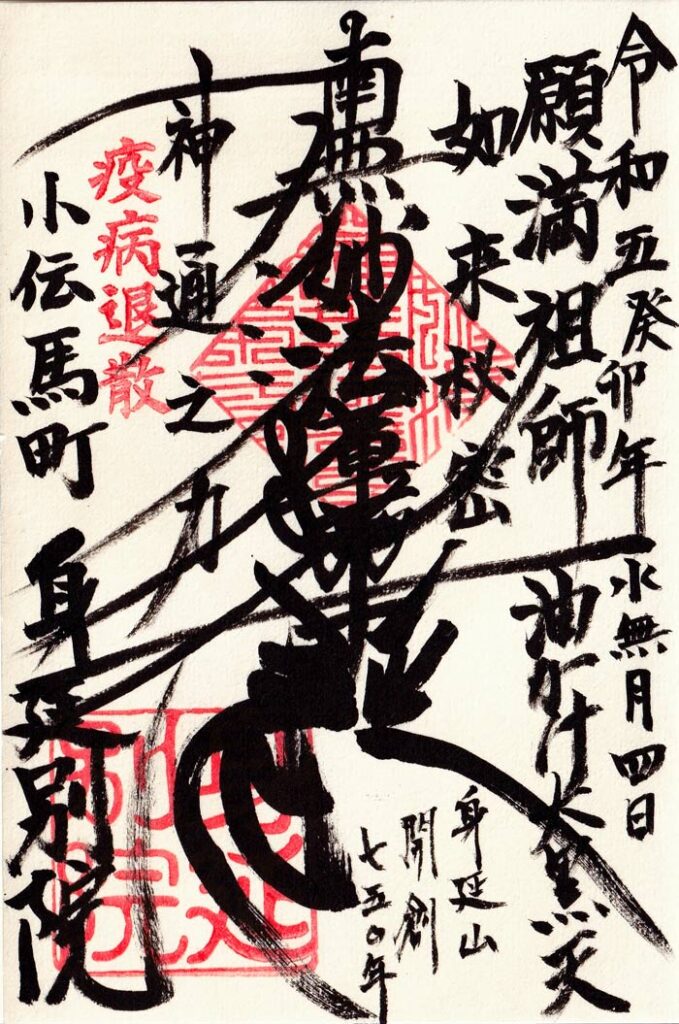 令和五癸卯年 水無月四日
願満祖師 油かけ大黒天
如来秘密
身延山
開創
七五〇年
南無妙法蓮華経
神通之力
疫病退散
小伝馬町 身延別院
身延別院